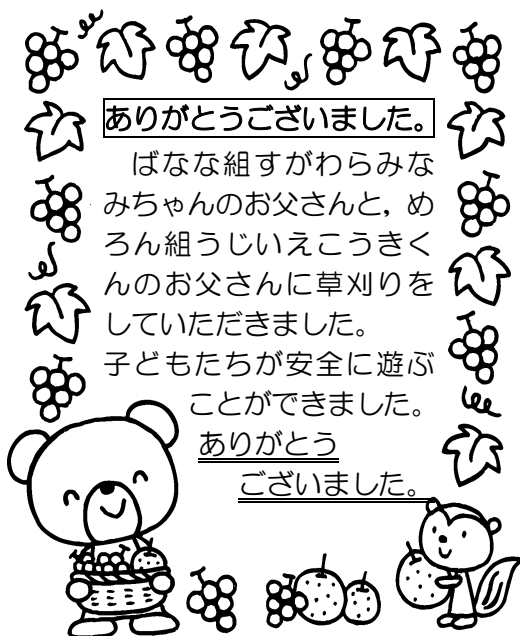 ありがとうございました。
ばなな組すがわらみな
みちゃんのお父さんと，め
ろん組うじいえこうきく
んのお父さんに草刈りを
していただきました。
子どもたちが安全に遊ぶ
ことができました。
ありがとう
ございました。